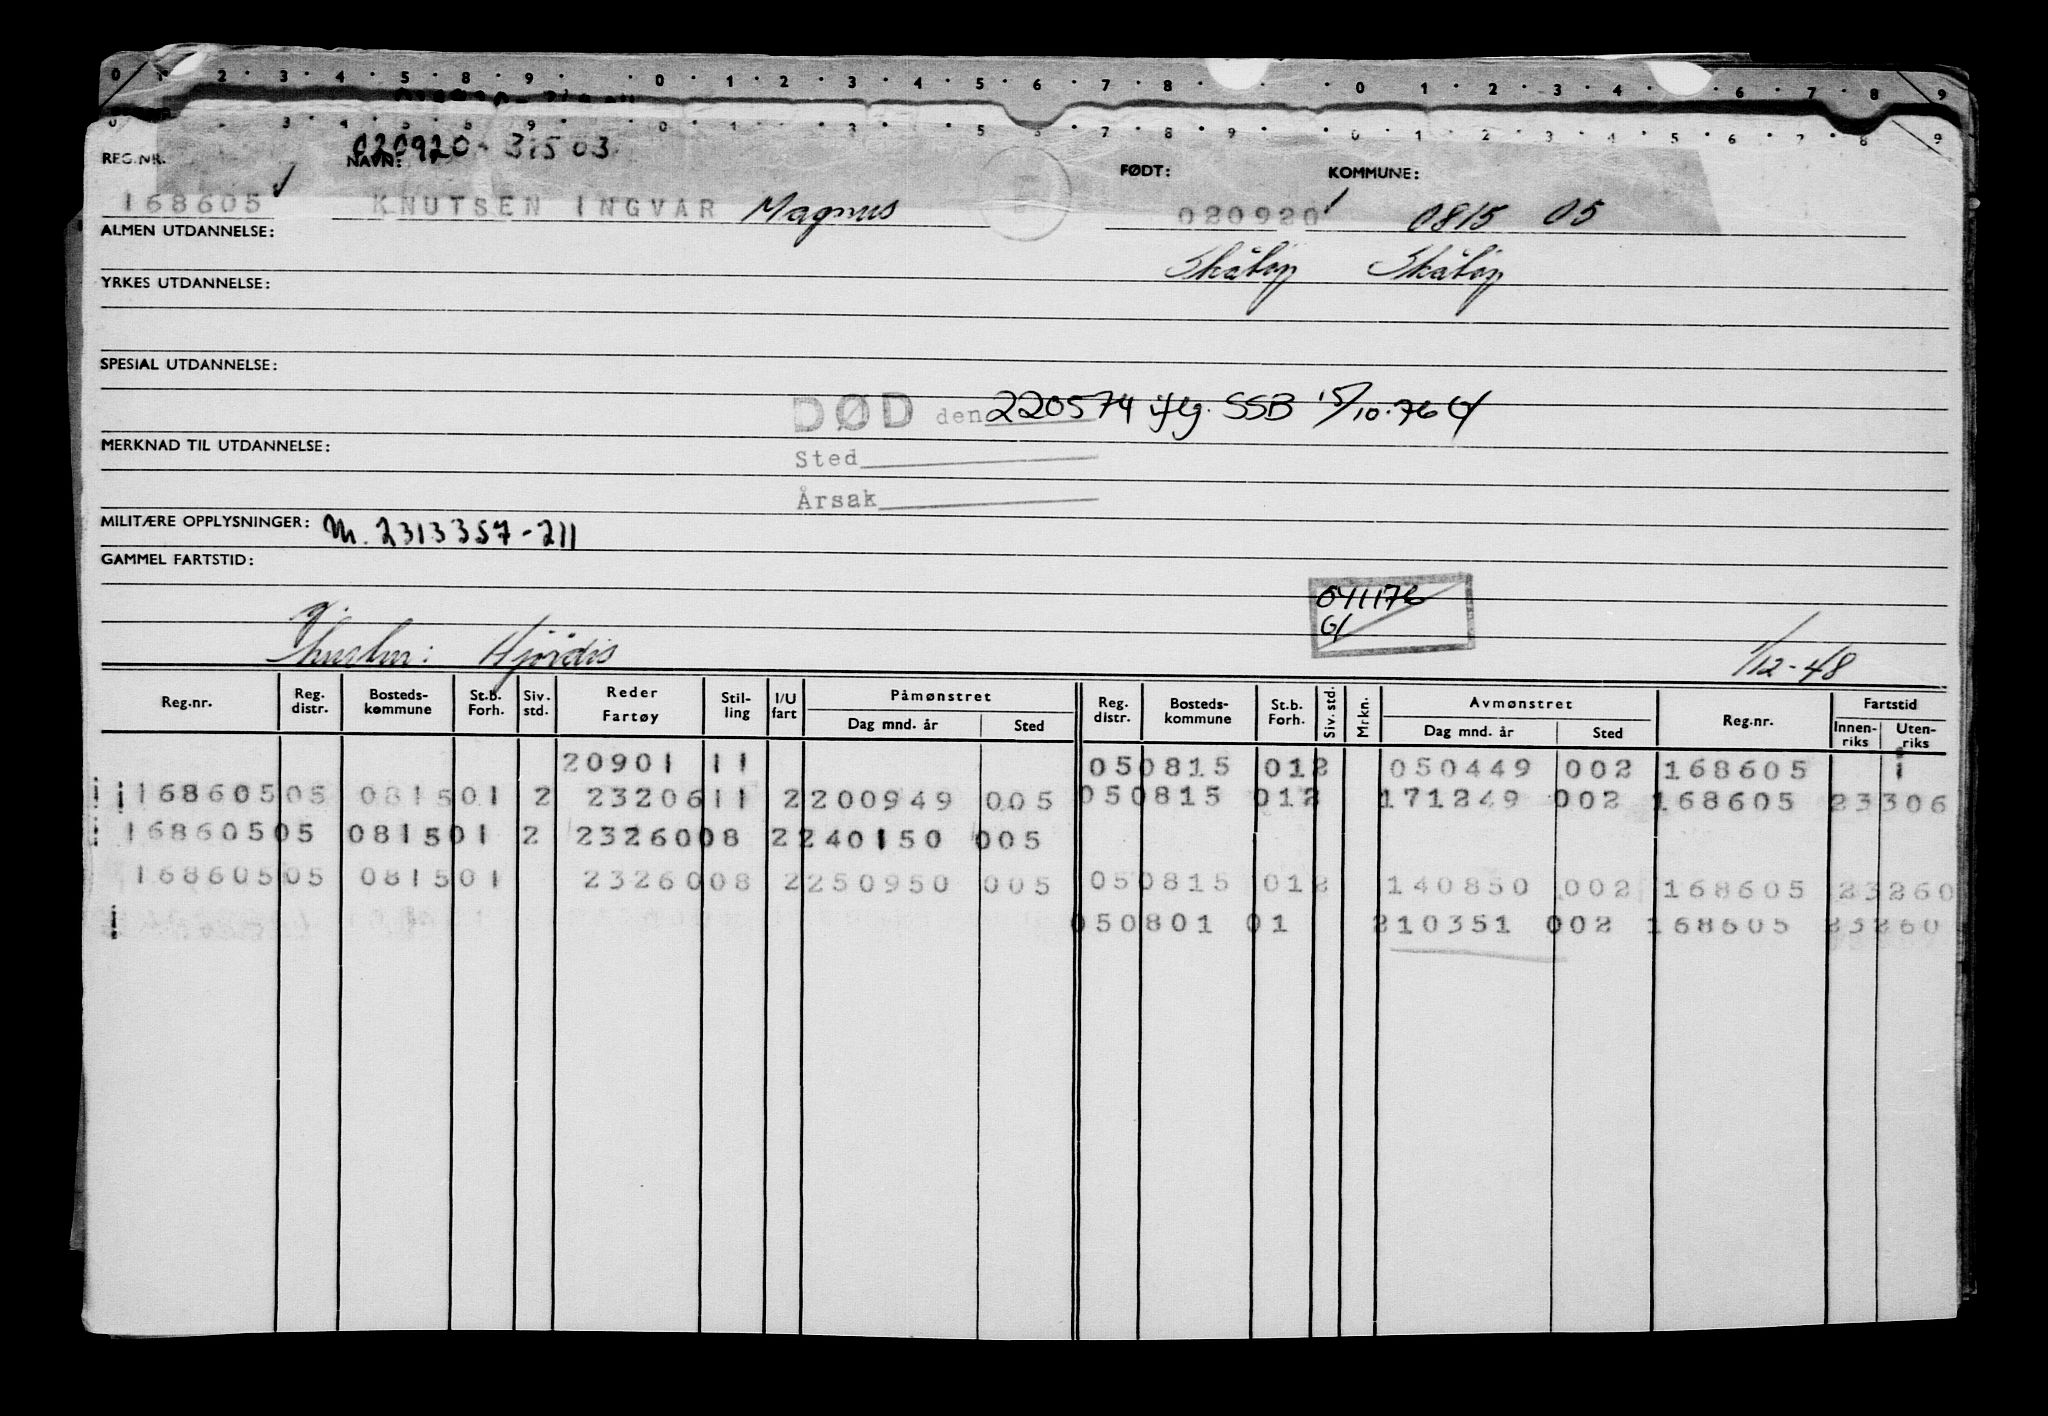 0 1 2 3 4 5 8 9 0 1 2 3 4 5 6 7 8 0 1 2 3 4 6 7 8 9
0 3 4 5 0 1 3 5 6 7 8 9 0 1 2 3 4 5 6 7 8 9
020920 - 31503
REG.NR. NAVN: FØDT: KOMMUNE:
168605 KNUTSEN INGVAR Magnus 020920 0815 05
ALMEN UTDANNELSE:
Skåtøy Skåtøy
YRKES UTDANNELSE:
SPESIAL UTDANNELSE:
DØD den 220574 iflg. SSB 15/10-76 G/
MERKNAD TIL UTDANNELSE:
Sted
Årsak
MILITÆRE OPPLYSNINGER: M. 2313357-211
GAMMEL FARTSTID:
041176
G/
Hjørdis 1/12-48
Reg.nr. Reg. distr. Bosteds-kommune St.b. Forh. Siv. std. Reder Fartøy Stil-ling I/U fart Påmønstret Dag mnd. år Sted Reg. distr. Bosteds-kommune St.b. Forh. Siv. std. Mrkn. Avmønstret Dag mnd. år Sted Reg.nr. Fartstid Innen-riks Uten-riks
20901 11 050815 012 050449 002 168605 1
16860505 081501 2 2320611 2200949 005 050815 012 171249 002 168605 23306
16860505 081501 2 2326008 2240150 005
16860505 081501 2326008 2250950 005 050815 012 140850 002 168605 23260
050801 01 210351 002 168605 23260